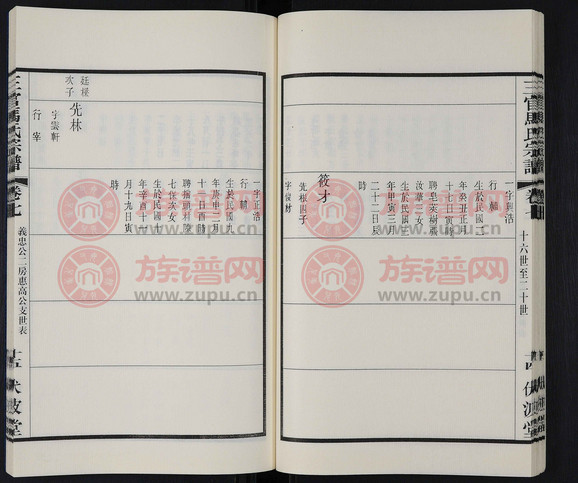 三官馬氏宗譜
卷七
十六世至二十世
伏波堂
一字興浩
行輔
生於民國二
年癸丑正月
十七日寅時
生於民國三
年甲寅三月
二十二日辰
時
筱才
先根四子
一字正浩
行輔
生於民國九
十三日酉時
生於民國十
年辛酉十一
月十九日寅
時
次子
先林
字雲軒
行宰
三官馬氏宗譜
卷七
義忠公二房惠高公支世表
十五
伏波堂
族谱网
www.zupu.cn
族谱网
www.zupu.cn